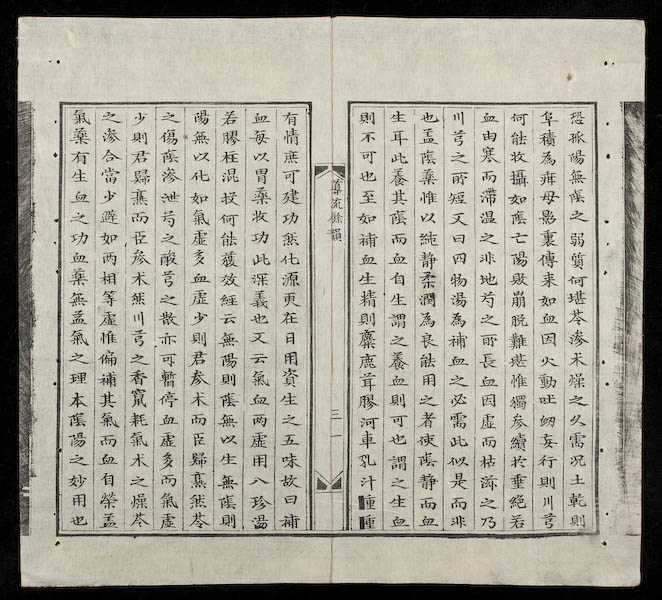 恐孤陽無陰之弱質何堪苓滲术燥之久需况土乾則
阜積為痺母影裏傳来如血因火動吐衂妄行則川芎
何能收攝如陰亡陽敗崩脫難堪惟獨參續於垂絕若
血由寒而滯温之非地芍之所長血因虛而枯泺之乃
川芎之所短又曰四物湯為補血之必需此似是而非
也盖陰藥惟以純静柔潤為良能用之者使陰静而血
生耳此養其陰而血自生謂之養血則可也謂之生血
則不可也至如補血生精則麋鹿茸膠河車乳汁種種
尊流餘韻
三一
有情庶可建功然化源更在日用資生之五味故曰補
血每以胃藥收功此深義也又云氣血兩虛用八珍湯
若膠柱混投何能獲效經云無陽則陰無以生無陰則
陽無以化如氣虛多血虛少則君參术而臣歸熟然苓
之傷陰滲泄芍之酸芎之散亦可暫停血虛多而氣虛
少則君歸熟而臣參术然川芎之香竄耗氣术之燥苓
之滲合當少避如两相等虛惟偏補其氣而血自榮盖
氣藥有生血之功血藥無益氣之理本陰陽之妙用也